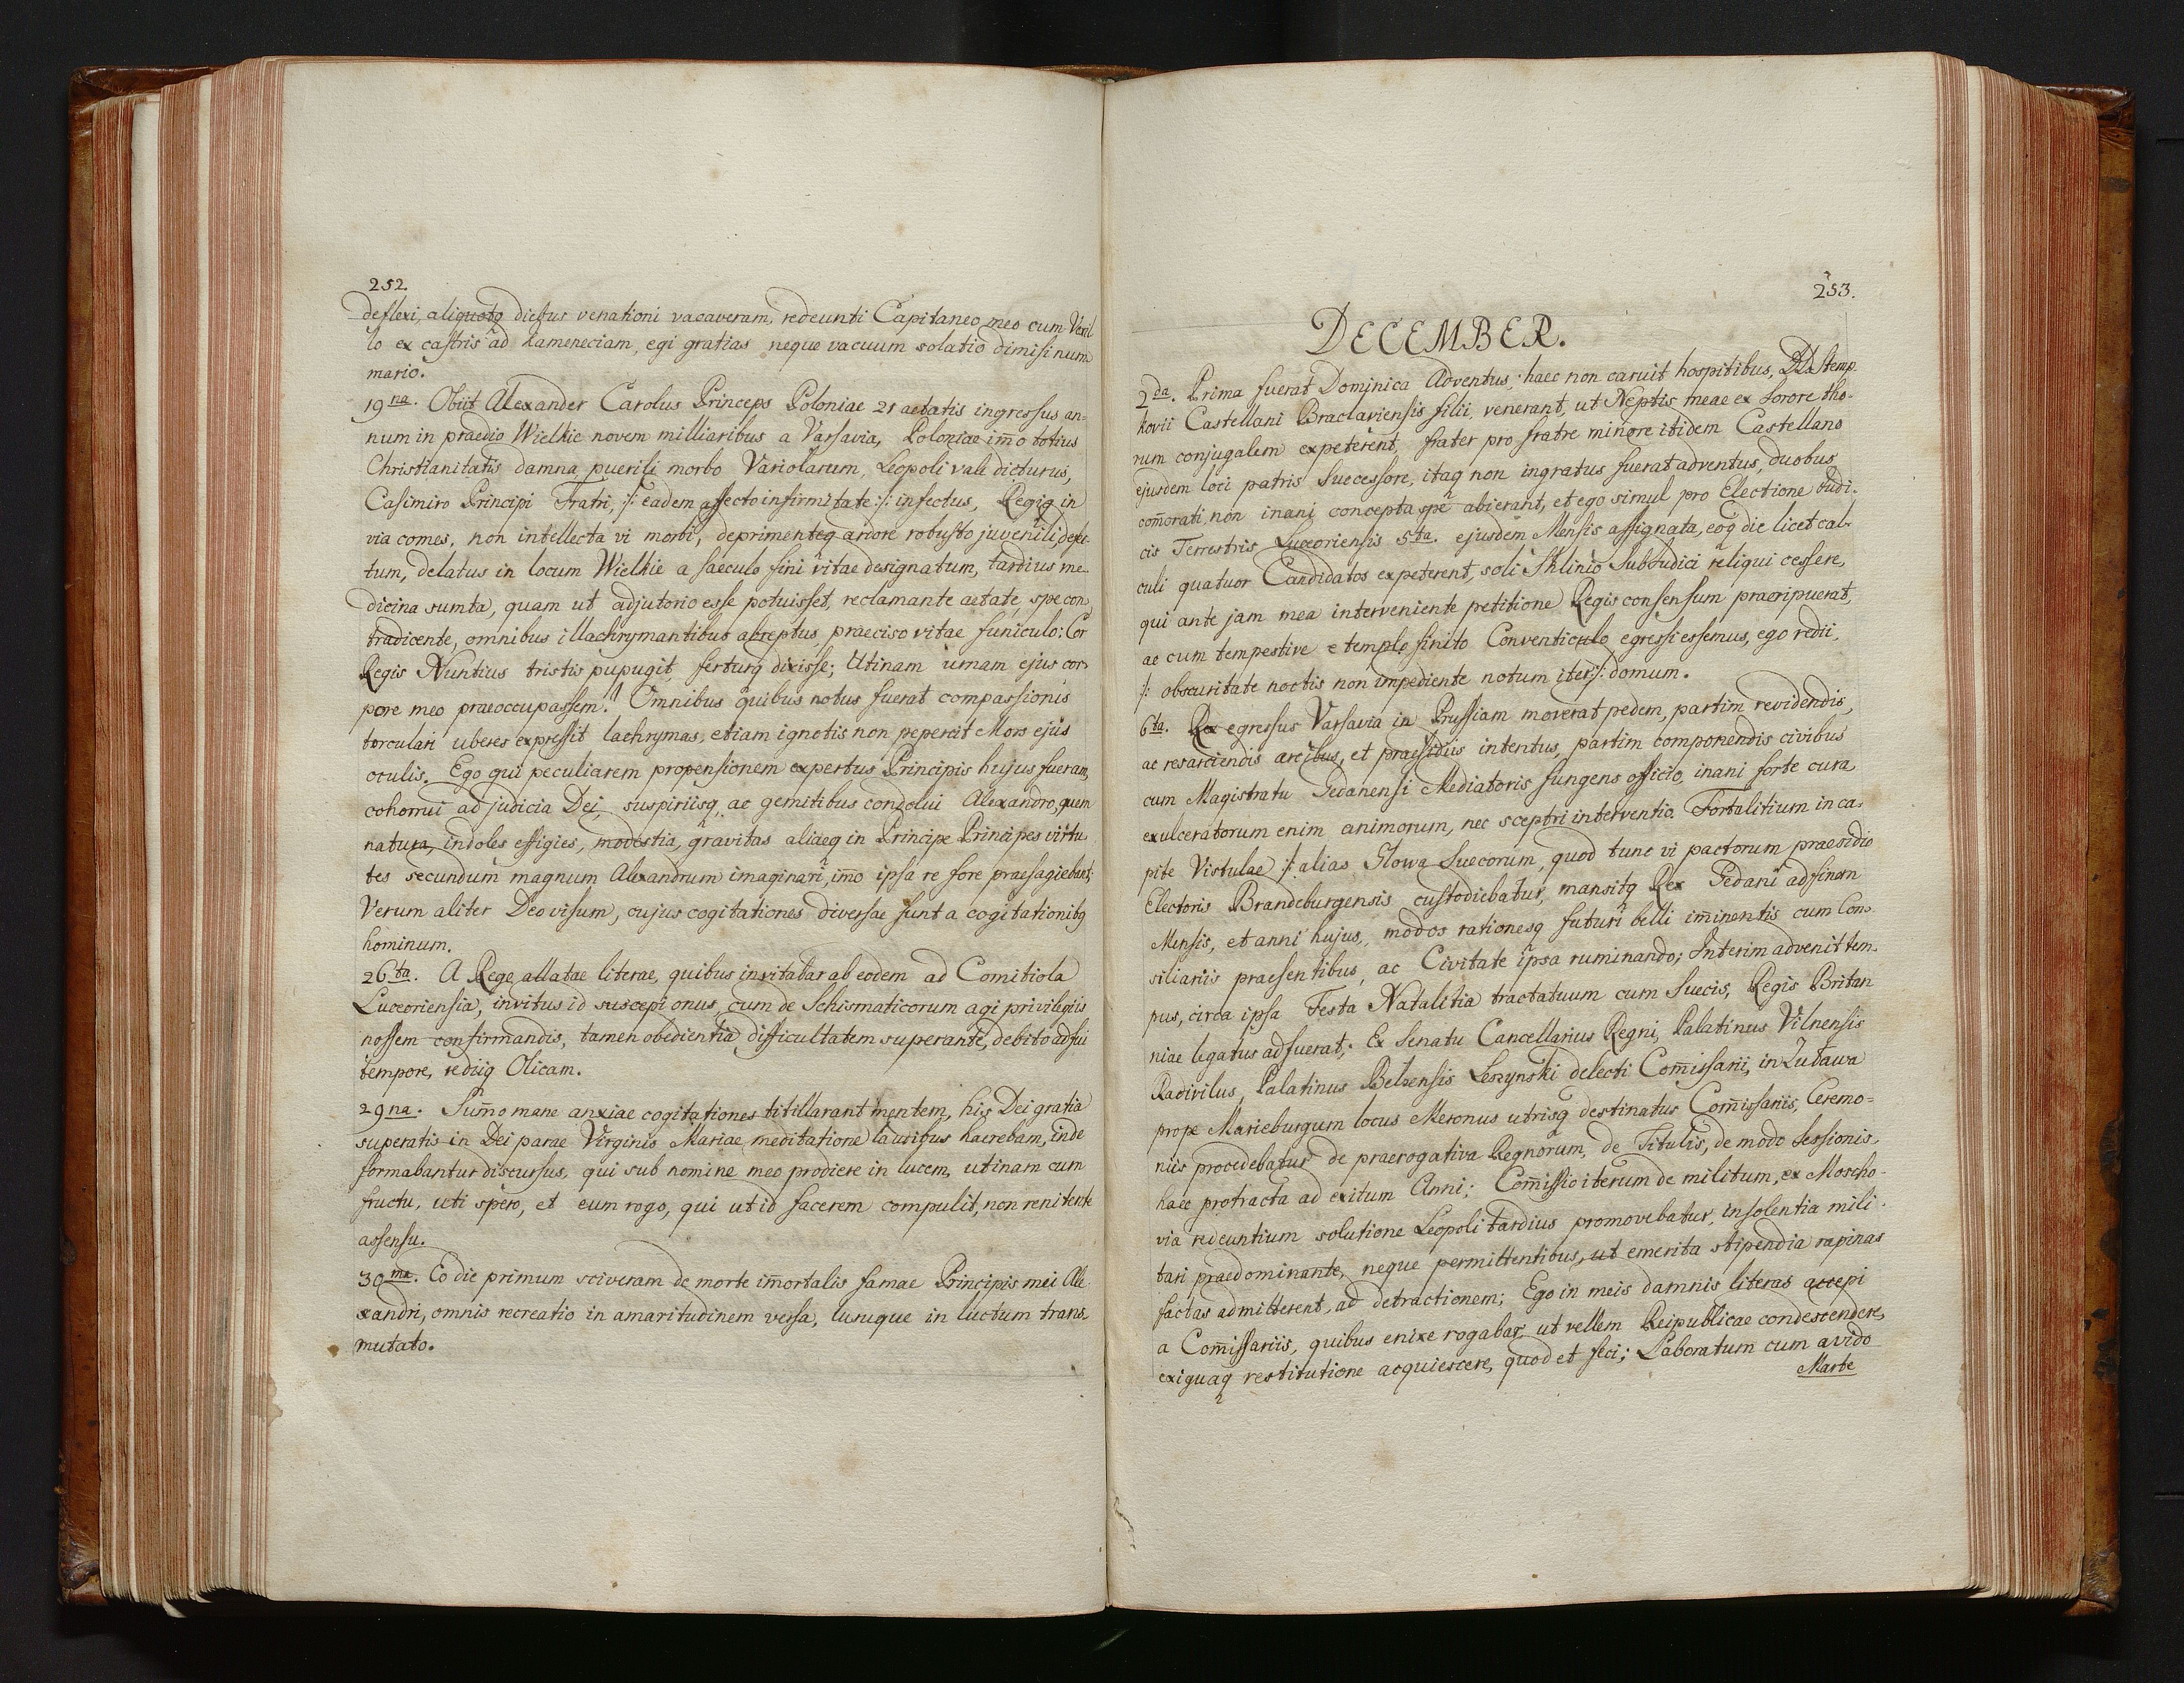 252.
deflexi, aliquotq diebus venationi vacaveram, redeunti Capitaneo meo cum Vexil
lo ex castris ad Kameneciam, egi gratias neque vacuum solatio dimisi num
mario.
19na. Obiit Alexander Carolus Princeps Poloniae 21 aetatis ingressus an-
num in praedio Wielkie novem milliaribus a Varsavia, Poloniae im̄o totius
Christianitatis damna, puerili morbo Variolarum, Leopoli vale dicturus,
Casimiro Principi Fratri, :/: eadem affecto infirmitate :/: infectus, Regiq in
via comes, non intellecta vi morbi, deprimenteq ardore robusto juvenili, defec
tum, delatus in locum Wielkie a saeculo fini vitae designatum, tardius me-
dicina sumta, quam ut adjutorio esse potuisset, reclamante aetate, spe con
tradicente, omnibus illachrymantibus abreptus, praeciso vitae funiculo: Cor
Regis Nuntius tristis pupugit, ferturq dixisse; Utinam urnam ejus cor-
pore meo praeoccupassem! Omnibus quibus notus fuerat compassionis
torculari uberes expressit lachrymas, etiam ignotis non pepercit Mors ejus
oculis. Ego qui peculiarem propensionem expertus Principis hujus fueram,
cohorrui ad judicia Dei, suspiriisq, ac gemitibus condolui Alexandro, quem
natura, indoles effigies, modestia, gravitas aliaeq in Principe Principes virtu
tes secundum magnum Alexandrum imaginari, im̄o ipsa re fore praesagiebant;
Verum aliter Deo visum, cujus cogitationes diversae sunt a cogitationibq
hominum.
26ta. A Rege allatae literae, quibus invitabar ab eodem ad Comitiola
Luceoriensia, invitus id suscepi onus, cum de Schismaticorum agi privilegiis
nossem confirmandis, tamen obedientia difficultatem superante, debito adfui
tempore, rediiq Olicam.
29na. Sum̄o mane anxiae cogitationes titillarant mentem, his Dei gratia
superatis in Dei parae Virginis Mariae meditatione laudibus haerebam, inde
formabantur discursus, qui sub nomine meo prodiere in lucem, utinam cum
fructu, uti spero, et eum rogo, qui ut id facerem compulit, non renitente
assensu.
30ma. Eo die primum sciveram de morte im̄ortalis famae Principis mei Ale
xandri, omnis recreatio in amaritudinem versa, lusuque in luctum trans-
mutato.
253.
DECEMBER.
2da. Prima fuerat Dominica Adventus, haec non caruit hospitibus, DD. Stemp-
kovii Castellani Braclaviensis filii, venerant, ut Neptis meae ex Sorore tho-
rum conjugalem expeterent, frater pro fratre minore itidem Castellano
ejusdem loci patris Successore, itaq non ingratus fuerat adventus, duobus
com̄orati, non inani concepta spe abierant, et ego simul pro Electione Iudi-
cis Terrestris Luceoriensis 5ta. ejusdem Mensis assignata, eoq die licet cal-
culi quatuor Candidatos expeterent, soli Sklinio SubIudici reliqui cessere,
qui ante jam mea interveniente petitione Regis consensum praeripuerat,
ac cum tempestive e templo finito Conventiculo egressi essemus, ego redii,
:/: obscuritate noctis non impediente notum iter :/: domum.
6ta. Rex egressus Varsavia in Prussiam moverat pedem, partim revidendis,
ac resarciendis arcibus, et praesidiis intentus, partim componendis civibus
cum Magistratu Gedanensi Mediatoris fungens officio, inani forte cura
exulceratorum enim animorum, nec sceptri interventio. Fortalitium in ca-
pite Vistulae :/: alias Glowa Suecorum, quod tunc vi pactorum praesidio
Electoris Brandeburgensis custodiebatur, mansitq Rex Gedani ad finem
Mensis, et anni hujus, modos rationesq futuri belli im̄inentis cum Con-
siliariis praesentibus, ac Civitate ipsa ruminando; Interim advenit tem-
pus, circa ipsa Festa Natalitia tractatuum cum Suecis, Regis Britan
niae legatus adfuerat, Ex Senatu Cancellarius Regni, Palatinus Vilnensis
Radivilus, Palatinus Belzensis Leszynski delecti Com̄issarii, in Zutawa
prope Marieburgum locus Meronus utrisq destinatus Com̄issariis, Ceremo-
niis procedebatur de praerogativa Regnorum, de Titulis, de modo Sessionis,
haec protracta ad exitum Anni; Com̄issio iterum de militum, ex Moscho-
via redeuntium solutione Leopoli tardius promovebatur, insolentia mili-
tari praedominante, neque permittentibus, ut emerita stipendia rapinas
factas admitterent, ad detractionem; Ego in meis damnis literas accepi
a Com̄issariis, quibus enixe rogabar, ut vellem Reipublicae condescendere,
exiguaq restitutione acquiescere, quod et feci; Laboratum cum avido
Marte